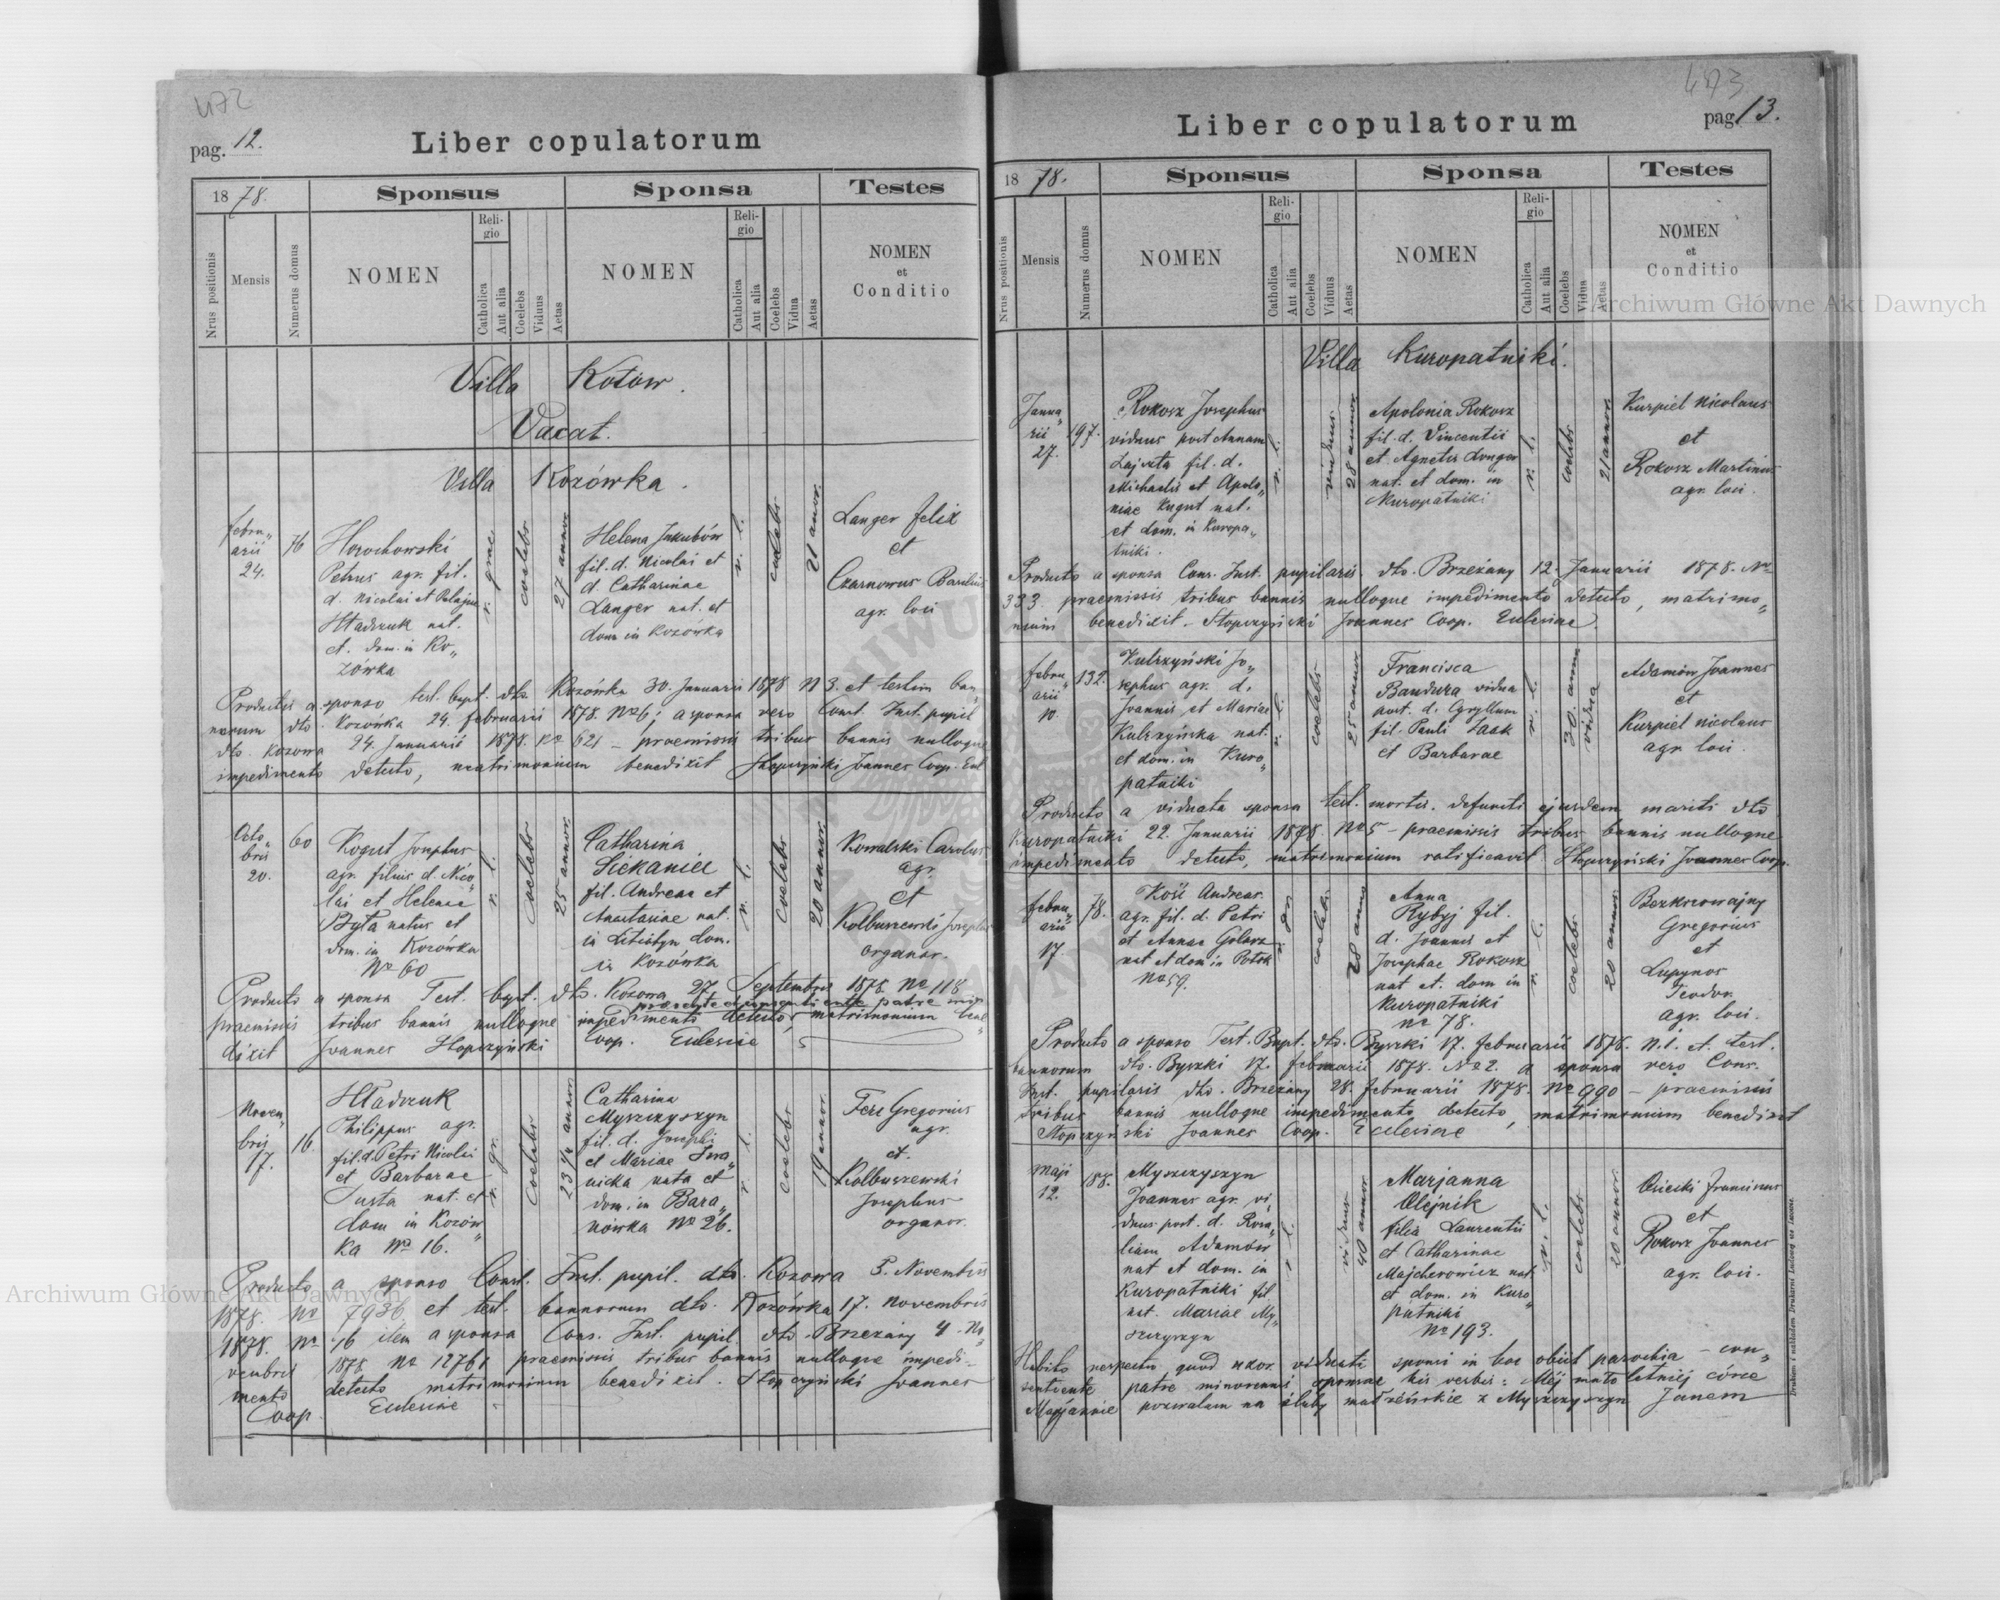 472
pag. 12.
Liber copulatorum
1878.
Sponsus
Sponsa
Testes
Nrus positionis
Mensis
Numerus domus
NOMEN
Religio
Catholica
Aut alia
Coelebs
Viduus
Aetas
NOMEN
Religio
Catholica
Aut alia
Coelebs
Vidua
Aetas
NOMEN
et
Conditio
Villa Kotów.
Vacat.
Villa Kozówka.
Febru„
arii
24.
76
Horochowski
Petrus agr. fil.
d. Nicolai et
Hładczuk nat.
et. dom. in Ko„
zówka
coelebs
27 annor.
Helena Jakubów
fil. d. Nicolai et
d. Catharinae
Langer nat. et
dom in Kozówka
r. l.
coelebs
21 annor.
Langer Felix
et
Czarnowus Basilius
agr. loci
Productis a sponso test. bapt. dto Kozówka 30. Januarii 1878 N 3. et testim ban„
norum dto. Kozówka 24. Februarii 1878. No 6; a sponsa vero Const. Inst. pupil
dto. Kozowa 24. Januarii 1878. No 621 – praemissis tribus bannis nulloque
impedimento detecto, matrimonium benedixit Stopczyński Joannes Coop. Eccl
Octo„
bris
20.
60
Kogut Josephus
agr. filius d. Nico„
lai et Helenae
Byta natus et
dom. in Kozówka
No 60
r. l.
coelebs
25 annor.
Catharina
Siekaniec
fil. Andreae et
Anastasiae nat.
in Litiatyn dom.
in Kozówka
r. l.
coelebs
20 annor.
Kowalski Carolus
agr.
et
Kolbuszewski Josephus
organar.
Producto a sponsa Test. bapt. dto. Kozowa 27. Septembris 1878. No 118
praesente et consentiente patre
praemissis tribus bannis nulloque impedimento detecto, matrimonium bene„
dixit Joannes Stopczyński Coop. Ecclesiae
Novem
bris
17.
16.
Hładczuk
Philippus agr.
fil. d. Petri Nicolai
et Barbarae
Susta nat. et
dom in Kozów„
ka No 16.
r. gr.
coelebs
23 ½ annor.
Catharina
Myszczyszyn
fil. d. Josephi
et Mariae
nicka nata et
dom. in Bara„
nówka No 26.
r. l.
coelebs
19 annor.
Ferc Gregorius
agr.
et.
Kolbuszewski
Josephus
organar.
Producto a sponso Const. Inst. pupil. dto. Kozowa 5. Novembris
1878. No 7936 et test. bannorum dto. Kozówka 17. Novembris
1878. No 76 item a sponsa Cons. Inst. pupil dto. Brzeżany 4. No„
vembris 1878 No 12761 praemissis tribus bannis nulloque impedi„
mento detecto matrimonium benedixit. Stopczyński Joannes
Coop. Ecclesiae
473
pag. 13.
Liber copulatorum
1878.
Sponsus
Sponsa
Testes
Nrus positionis
Mensis
Numerus domus
NOMEN
Religio
Catholica
Aut alia
Coelebs
Viduus
Aetas
NOMEN
Religio
Catholica
Aut alia
Coelebs
Vidua
Aetas
NOMEN
et
Conditio
Villa Kuropatniki.
Janua„
rii
27.
197.
Rokosz Josephus
viduus post Annam
Lajszta fil. d.
Michaelis et Apolo„
niae Kugut nat.
et dom. in Kuropa„
tniki.
r. l.
viduus
28 annor
Apolonia Rokosz
fil. d. Vincentii
et Agnetis
nat. et dom. in
Kuropatniki
r. l.
coelebs
21 annor.
Kurpiel Nicolaus
et
Rokosz Martinus
agr. loci.
Producto a sponsa Cons. Inst. pupilaris. dto. Brzeżany 12. Januarii 1878. No
333. praemissis tribus bannis nulloque impedimento detecto, matrimo„
nium benedixit – Stopczyński Joannes Coop. Ecclesiae.
Febru„
arii
10
132.
Kulrzyński Jo„
sephus agr. d.
Joannis et Mariae
Kulrzyńska nat.
et dom. in Kuro„
patniki
r. l.
coelebs
25 annor
Francisca
Bandura vidua
post. d. Cyryllum
fil. Pauli Zaak
et Barbarae
r. l.
30. annor
vidua
Adamów Joannes
et
Kurpiel Nicolaus
agr loci.
Producto a viduata sponsa test. mortis. defuncti ejusdem mariti dto
Kuropatniki 22. Januarii 1878. No 5 – praemissis tribus bannis nulloque
impedimento detecto, matrimonium ratificavit Stopczyński Joannes Coop.
Febru„
arii
17.
78.
Kość Andreas.
agr. fil. d. Petri
et Annae
nat et dom in Potok
No 59.
r. gr
coelebs
28 annor
Anna
Rybyj fil.
d. Joannis et
Josephae Rokosz
nat et. dom in
Kuropatniki
No 78.
r. l.
coelebs
20 annor
Bezkorowajny
Gregorius
et
Lupynos
Teodor.
agr. loci.
Producto a sponso Test. Bapt. dto. Byszki 17. Februarii 1878. N. 1. et. test.
bannorum dto. Byszki 17. Februarii 1878. No 2. a sponsa vero Cons.
Inst. pupilaris dto. Brzeżany 28. Februarii 1878. No 990 – praemissis
tribus bannis nulloque impedimento detecto, matrimonium benedixit
Stopczyński Joannes Coop. Ecclesiae
Maji
12.
88.
Myszczyszyn
Joannes agr. vi„
duus post. d. Rosa„
liam Adamów
nat et dom. in
Kuropatniki fil.
nat. Mariae My„
szczyszyn
r. l.
viduus
40 annor
Marjanna
Olejnik
filia Laurentii
et Catharinae
Majcherowicz nat.
et dom. in Kuro„
patniki
No 193.
r. l.
coelebs
20 annor.
Osiecki Franciscus
et
Rokosz Joannes
agr. loci.
Habito respectu quod uxor viduati sponsi in hoc obiit parochia – con„
sentiente patre minorennis sponsae his verbis: Mej małoletniej córce
Marjannie pozwalam na śluby małżeńskie z Myszczyszyn Janem
Drukiem i nakładem Drukarni Ludowej we Lwowie.
Archiwum Główne Akt Dawnych
Archiwum Główne Akt Dawnych